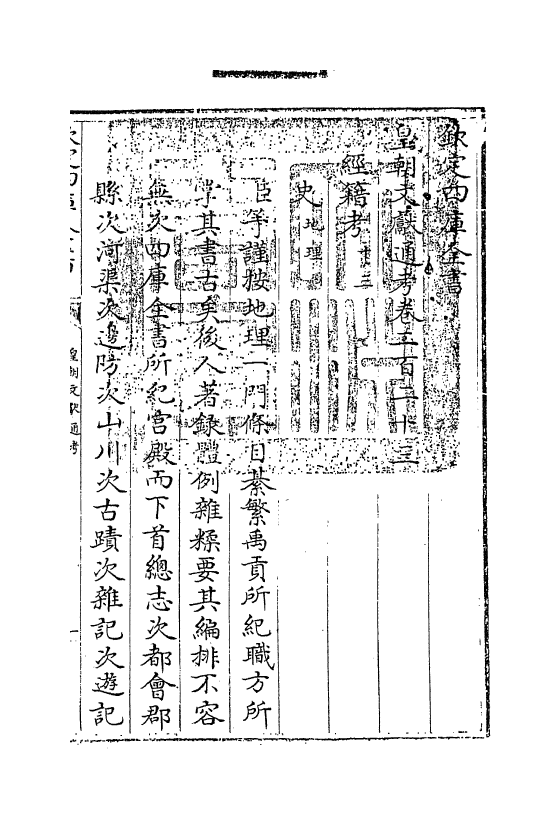 欽定四庫全書
皇朝文獻通考卷二百二十三
經籍考十三
史地理
臣等謹按地理一門條目綦繁禹貢所紀職方所
掌其書古矣後人著錄體例雜糅要其編排不容
無次四庫全書所紀宮殿而下首總志次都會郡
縣次河渠次邊防次山川次古蹟次雜記次遊記
皇朝文獻通考